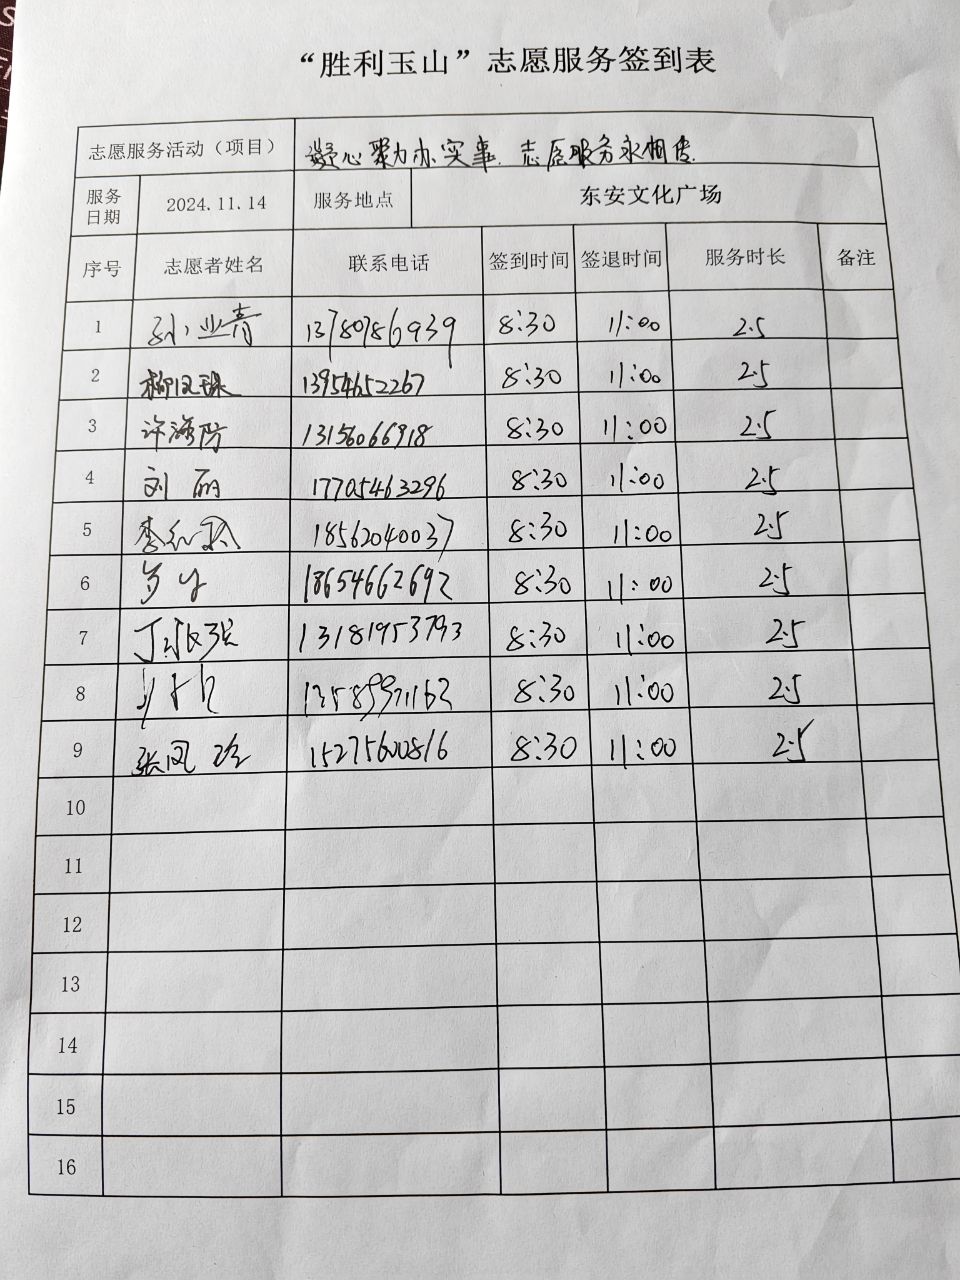 “胜利玉山”志愿服务签到表
志愿服务活动（项目） 凝心聚力办实事. 志愿服务永相传.
服务日期 2024.11.14 服务地点 东安文化广场
序号 志愿者姓名 联系电话 签到时间 签退时间 服务时长 备注
1 孙业青 13780786939 8:30 11:00 2.5
2 柳凤珠 13954652267 8:30 11:00 2.5
3 许海防 13156066918 8:30 11:00 2.5
4 刘丽 17705463296 8:30 11:00 2.5
5 18562040037 8:30 11:00 2.5
6 18654662692 8:30 11:00 2.5
7 13181953793 8:30 11:00 2.5
8 8:30 11:00 2.5
9 张凤玲 15275600816 8:30 11:00 2.5
10
11
12
13
14
15
16